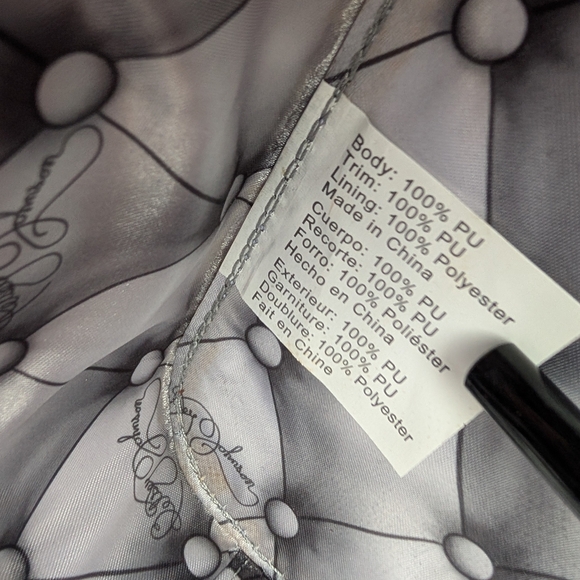 Body: 100% PU
Trim: 100% PU
Lining: 100% Polyester
Made in China
Cuerpo: 100% PU
Recorte: 100% PU
Forro: 100% Poliéster
Hecho en China
Exterieur: 100% PU
Garniture: 100% PU
Doublure: 100% Polyester
Fait en Chine
Johnson
Betsey Johnson
Johnson